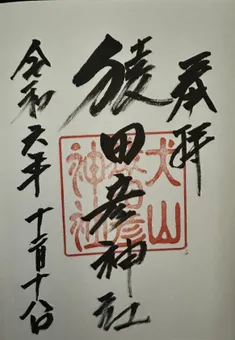 奉拝
猿田彦神社
令和六年 十一月十八日
犬山
猿田彦
神社